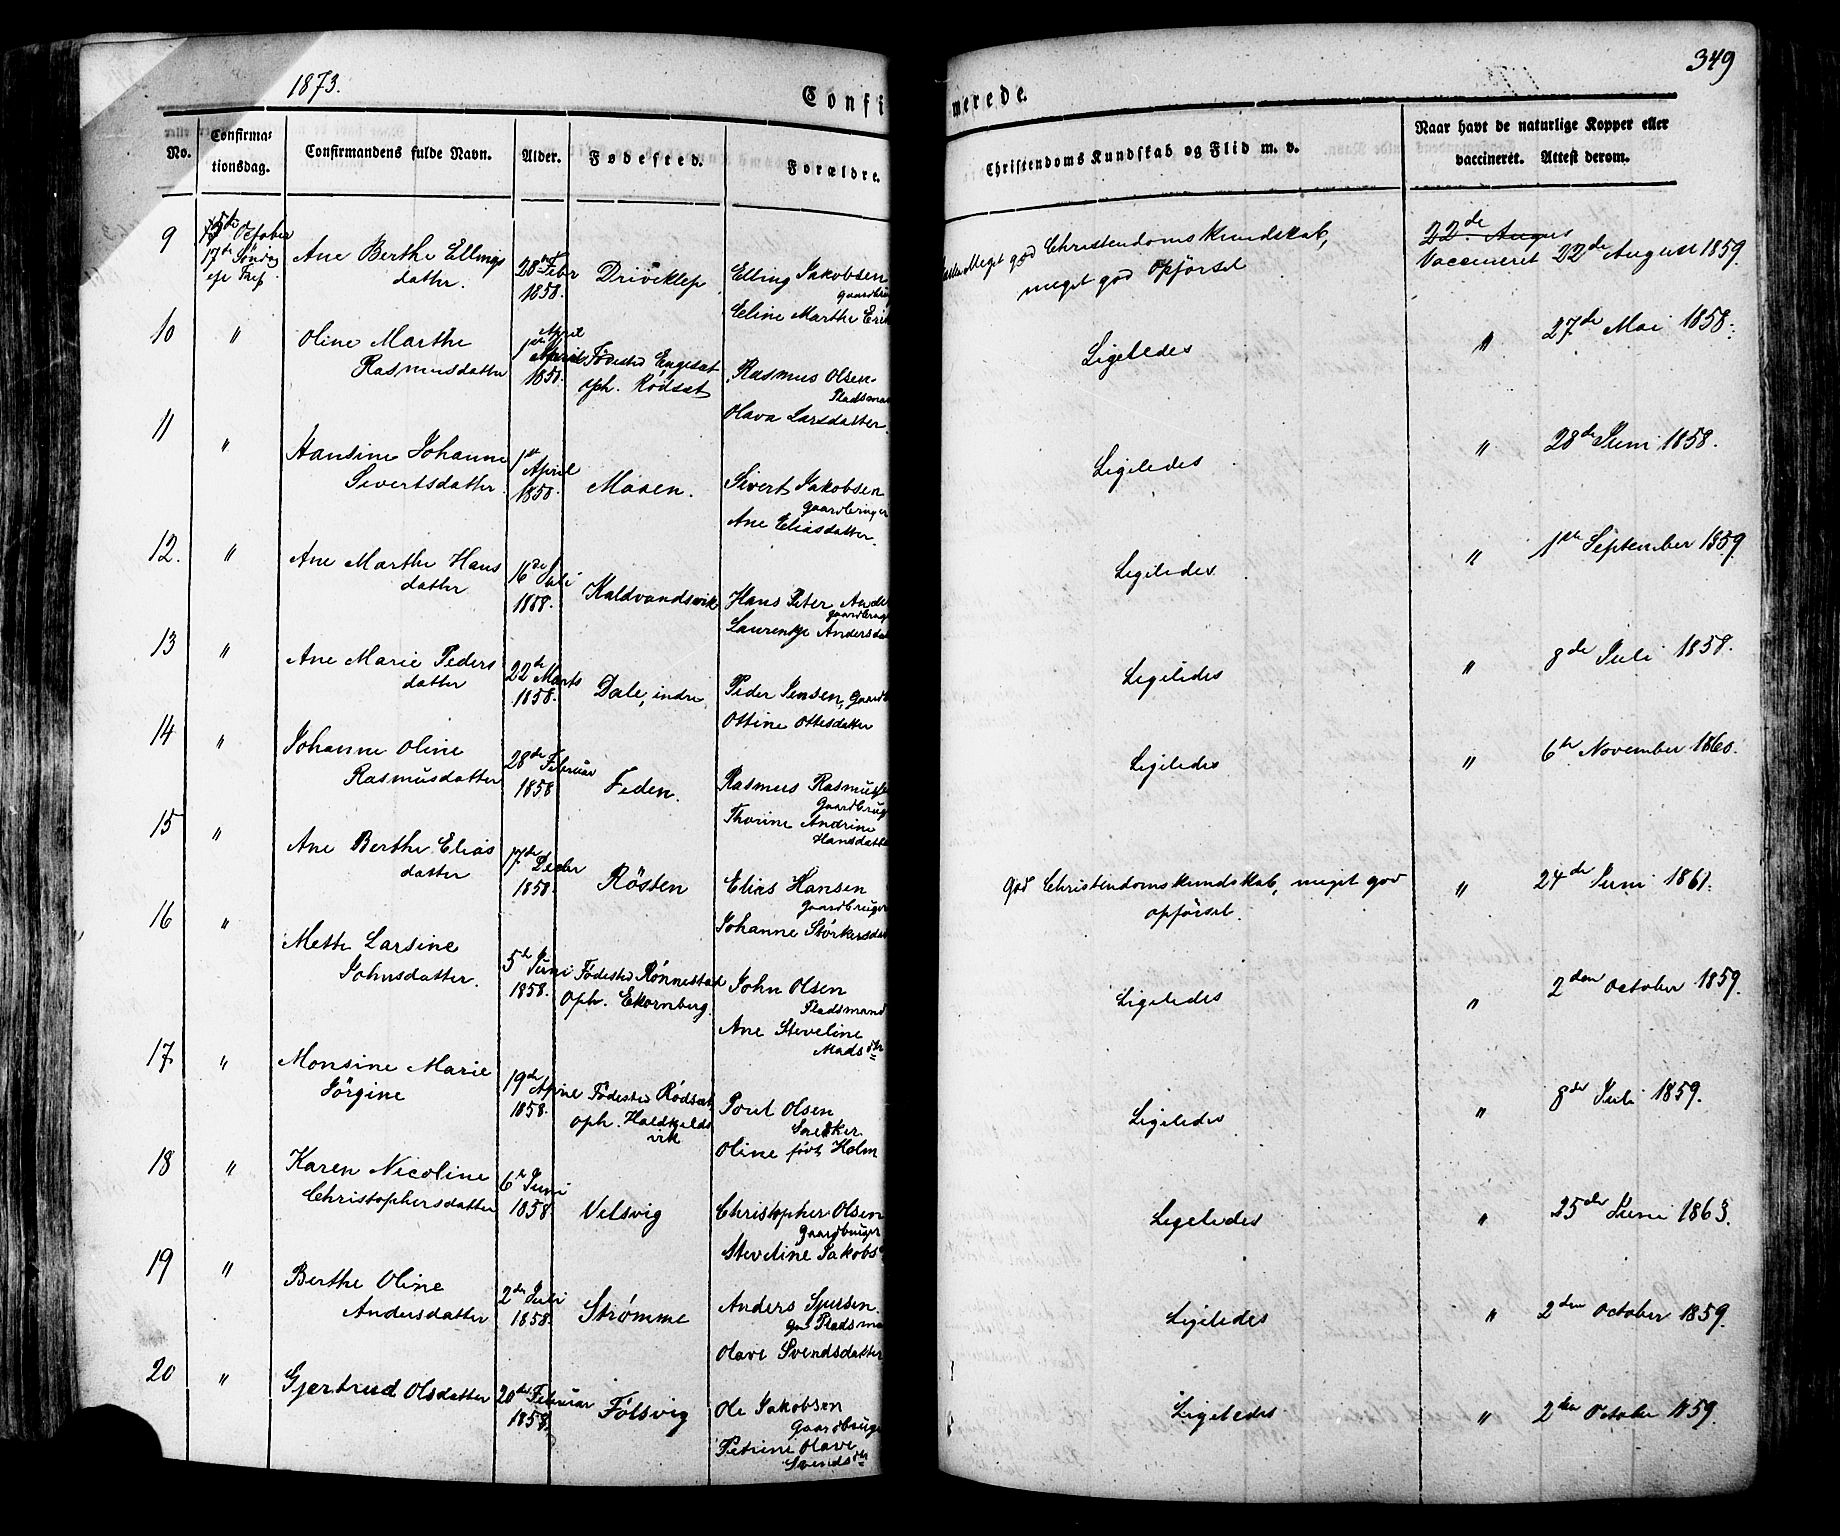 1873.
349
Confi
merede.
No.
Confirma-
tionsdag.
Confirmandens fulde Navn.
Alder.
Fødested.
Forældre.
Christendoms Kundskab og Flid m. v.
Naar havt de naturlige Kopper eller
vaccineret. Attest derom.
9
5te October
17de Søndag
ef. Tref
Ane Berthe Ellings
datter.
28de Febr
1858.
Driveklep
Elling Jakobsen
Gaardbru
Eline Marthe Erik
Meget god Christendomskundskab,
meget god Opførsel
22de Augus
Vaccineret 22de August 1859.
10
"
Oline Marthe
Rasmusdatter
April
1ste
1858.
Fødested Engeset
oph. Rødset
Rasmus Olsen
Pladsman
Olava Larsdatter.
Ligeledes
"
27de Mai 1858.
11
"
Hansine Johanne
Sivertsdatter
1ste
April
1858.
Maaen.
Sivert Jakobsen
Gaardbruger
Ane Eliasdatter.
Ligeledes
"
28de Juni 1858.
12.
"
Ane Marthe Hans
datter
16de Juli
1858.
Kaldvandsvik
Hans Peter Ande
Gaardbruge
Laurentje Andersdat
Ligeledes
"
1ste September 1859
13
"
Ane Marie Peders
datter
22de Marts
1858.
Dale, indre
Peder Jensen, Gaardb
Ottine Ottesdatter
Ligeledes
"
8de Juli 1858.
14
"
Johanne Oline
Rasmusdatter
28de Februar
1858
Feden.
Rasmus Rasmusse
Gaardbrug
Thorine Andrine
Hansdatte
Ligeledes
"
6te November 1860.
15
"
Ane Berthe Elias
datter
17de Decbr
1858.
Røsten
Elias Hansen
Gaardbruger
Johanne Størkersdat
God Christendomskundskab, meget god
opførsel.
"
24de Juni 1861.
16
"
Mette Larsine
Johnsdatter.
5te Juni
1858.
Fødested Rønnestad
Oph. Ekornberg.
John Olsen
Pladsmand
Ane Steveline
Madsdtr
Ligeledes
"
2den October 1859.
17
"
Monsine Marie
Jørgine
19de April
1858.
Fødested Rødset
oph. Haldkjelds
vik
Poul Olsen
Snedker.
Oline født Holm
Ligeledes
"
8de Juli 1859.
18
"
Karen Nicoline
Christophersdatter
6te Juni
1858
Velsvig
Christopher Olsen
Gaardbruger
Steveline Jakobs
Ligeledes
"
25de Juni 1863.
19
"
Berthe Oline
Andersdatter
2den Juli
1858.
Strømme
Anders Sjursen.
Pladsma
Olave Svendsdatter
Ligeledes
"
2den October 1859.
20
"
Gjertrud Olsdatter
20de Februar
1858.
Følsvig
Ole Jakobsen
Gaardbruge
Petrine Olave
Svendsdtr
Ligeledes
"
2den October 1859.